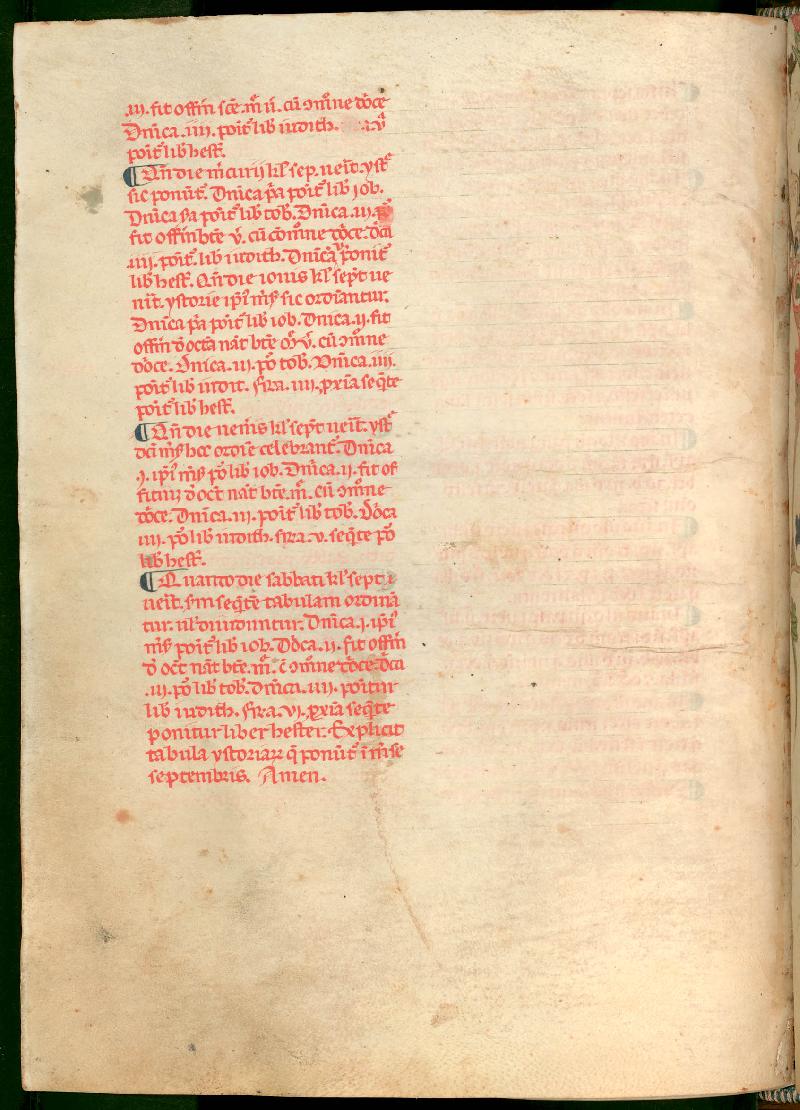 .iii. fit offm̄ sc̄e. m̄ ii. cū ↄmīne dōce
Dn̄ica .iiii. poīt lib iudith.
poīt lib hest̄.
¶ Qn̄ die m̄curij kl̄ sep. ueīt. yst̄
sic ponūt. Dn̄ica p̄a poīt lib iob.
Dn̄ica s̄a poīt lib tob. Dn̄ica .iii.
fit offm̄ bt̄e v̄. cū cōmīne dōce. dc̄a
.iiii. poīt. lib iudith. Dn̄ica v̄ ponīt
lib hest̄. Qn̄ die iouis kl̄ sept̄ ue
nīt. ystorie ip̄i m̄s sic ordīantur.
Dn̄ica p̄a poīt lib iob. Dn̄ica .ii. fit
offm̄ d̄ octa nāt bt̄e m̄. v̄. cū ↄmīne
dōce. Dn̄ica .iii. pō tob. Dn̄ica .iiii.
poīt lib iudit. fr̄a. .iiii. p̄xīa seq̄te
poīt lib hest̄.
¶ Qn̄ die uen̄is kl̄ sept̄ ueīt. yst̄
dc̄i m̄s hoc ordīe celebrant̄. Dn̄ica
.i. ip̄i m̄s pō lib iob. Dn̄ica .ii. fit of
fitiū d̄ oct̄ nāt bt̄e. m̄. cū ↄmīne
dōce. Dn̄ica .iii. poīt lib tob. Dōca
.iiii. pō lib iudith. fr̄a .v. seq̄te pō
lib hest̄.
¶ Quanto die sabbati kl̄ sept̄
ueīt. sm̄ seq̄te tabulam ordinā
tur. ul̄ diuiduntur. Dn̄ica .i. ip̄i
m̄s poīt lib iob. Dōca .ii. fit offm̄
d̄ oct̄ nāt bt̄e. m̄. c̄ ↄmīne dōce. dōca
.iii. pō lib tob. Dn̄ica .iiii. poītur
lib iudith. fr̄a .vi. p̄xīa seq̄te
ponitur liber hester. Explicit
tabula ystoriaꝝ q̄ ponūt ī m̄se
septembris. Amen.